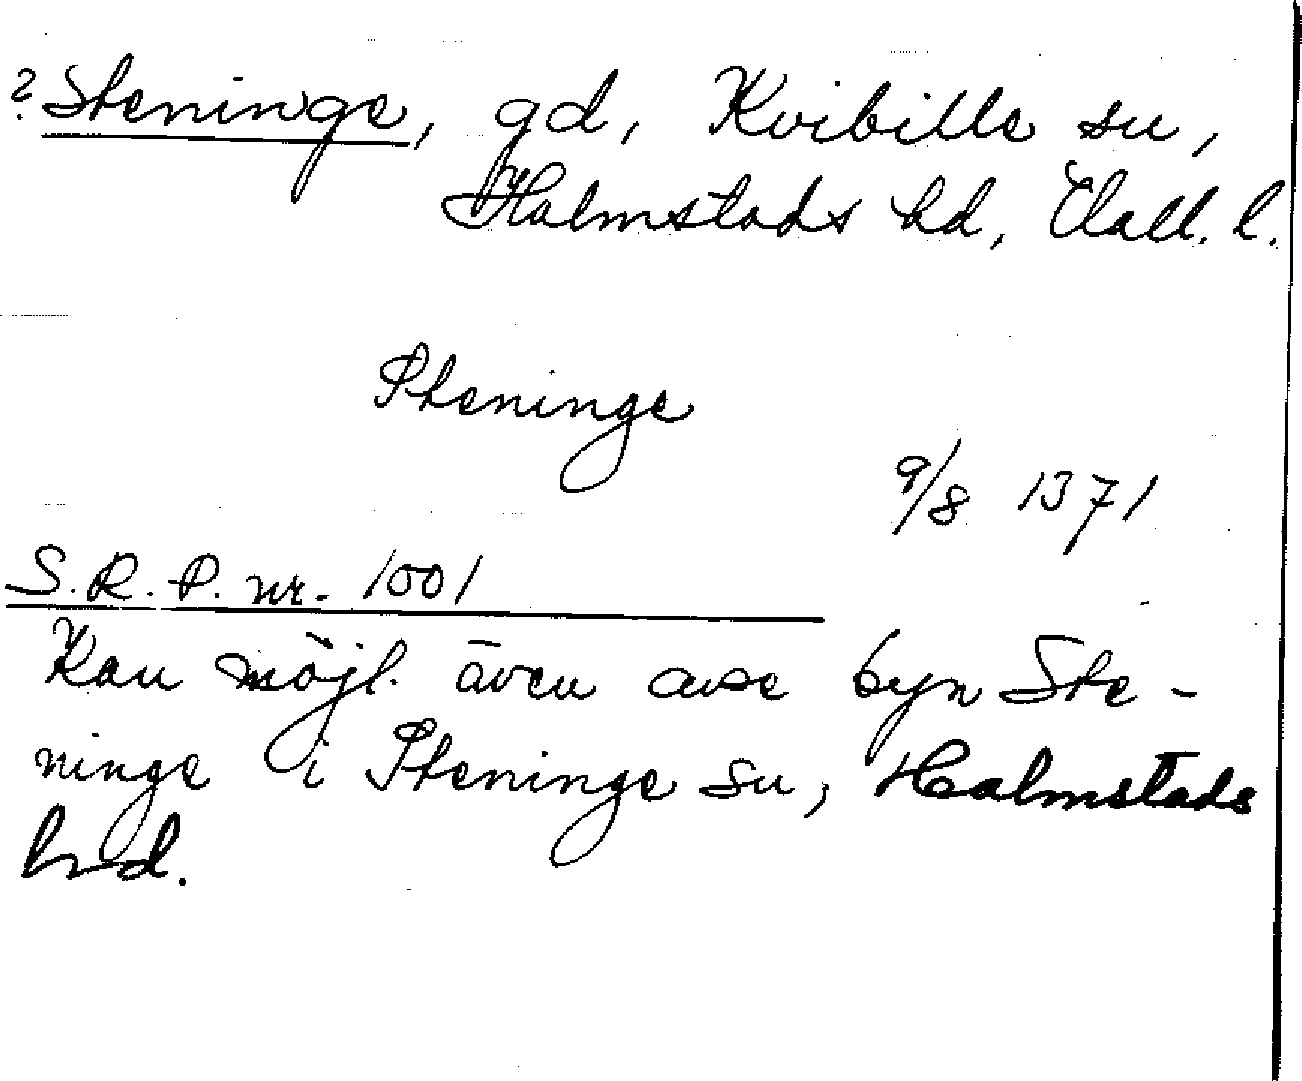 ? Steninge, gd, Kvibille sn,
Halmstads hd, Hall. l.
Steninge
9/8 1371
S.R.P. nr. 1001
Kan möjl. även avse byn Ste-
ninge i Steninge sn, Halmstads
hd.